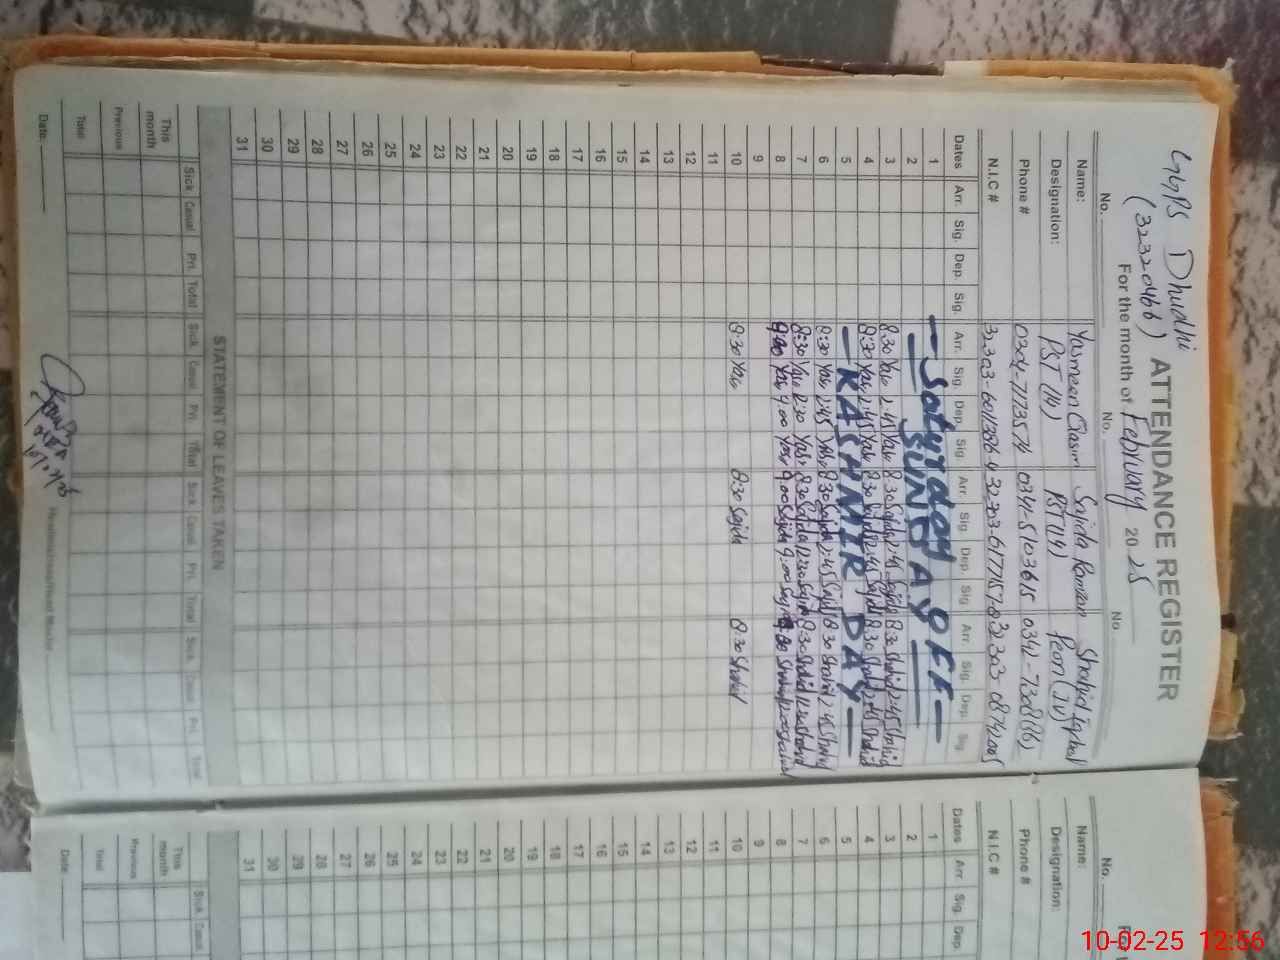 GGPS Dhudhi
(32320466) ATTENDANCE REGISTER
For the month of February 2025
No. No. No.
Name: Yasmeen Sajida Ramzan Shahid Iqbal
Designation: PST (14) PST (14) Peon (IV)
Phone # 0341-5103615
N.I.C #
Dates Arr. Sig. Dep. Sig. Arr. Sig. Dep. Sig. Arr. Sig. Dep. Sig. Arr. Sig. Dep. Sig.
1 — Saturday OFF —
2 SUNDAY
3 8:30 Yas 2:45 Yas 8:30 Sajida 2:45 Sajida 8:30 Shahid 2:45 Shahid
4 8:30 Yas 2:45 Yas 8:30 Sajida 2:45 Sajida 8:30 Shahid 2:45 Shahid
5 — KASHMIR DAY —
6 8:30 Yas 2:45 Yas 8:30 Sajida 2:45 Sajida 8:30 Shahid 2:45 Shahid
7 8:30 Yas 12:30 Yas 8:30 Sajida 12:30 Sajida 8:30 Shahid 12:30 Shahid
8 9:00 Yas 9:00 Sajida Shahid
9
10 8:30 Yas 8:30 Sajida 8:30 Shahid
11
12
13
14
15
16
17
18
19
20
21
22
23
24
25
26
27
28
29
30
31
STATEMENT OF LEAVES TAKEN
Sick Casual Pri. Total Sick Casual Pri. Total Sick Casual Pri. Total Sick Casual Pri. Total
This month
Previous
Total
Date: Headmistress/Head Master
No.
Name:
Designation:
Phone #
N.I.C #
Dates Arr. Sig. Dep
1
2
3
4
5
6
7
8
9
10
11
12
13
14
15
16
17
18
19
20
21
22
23
24
25
26
27
28
29
30
31
Sick Casual
This month
Previous
Total
Date:
10-02-25 12:56